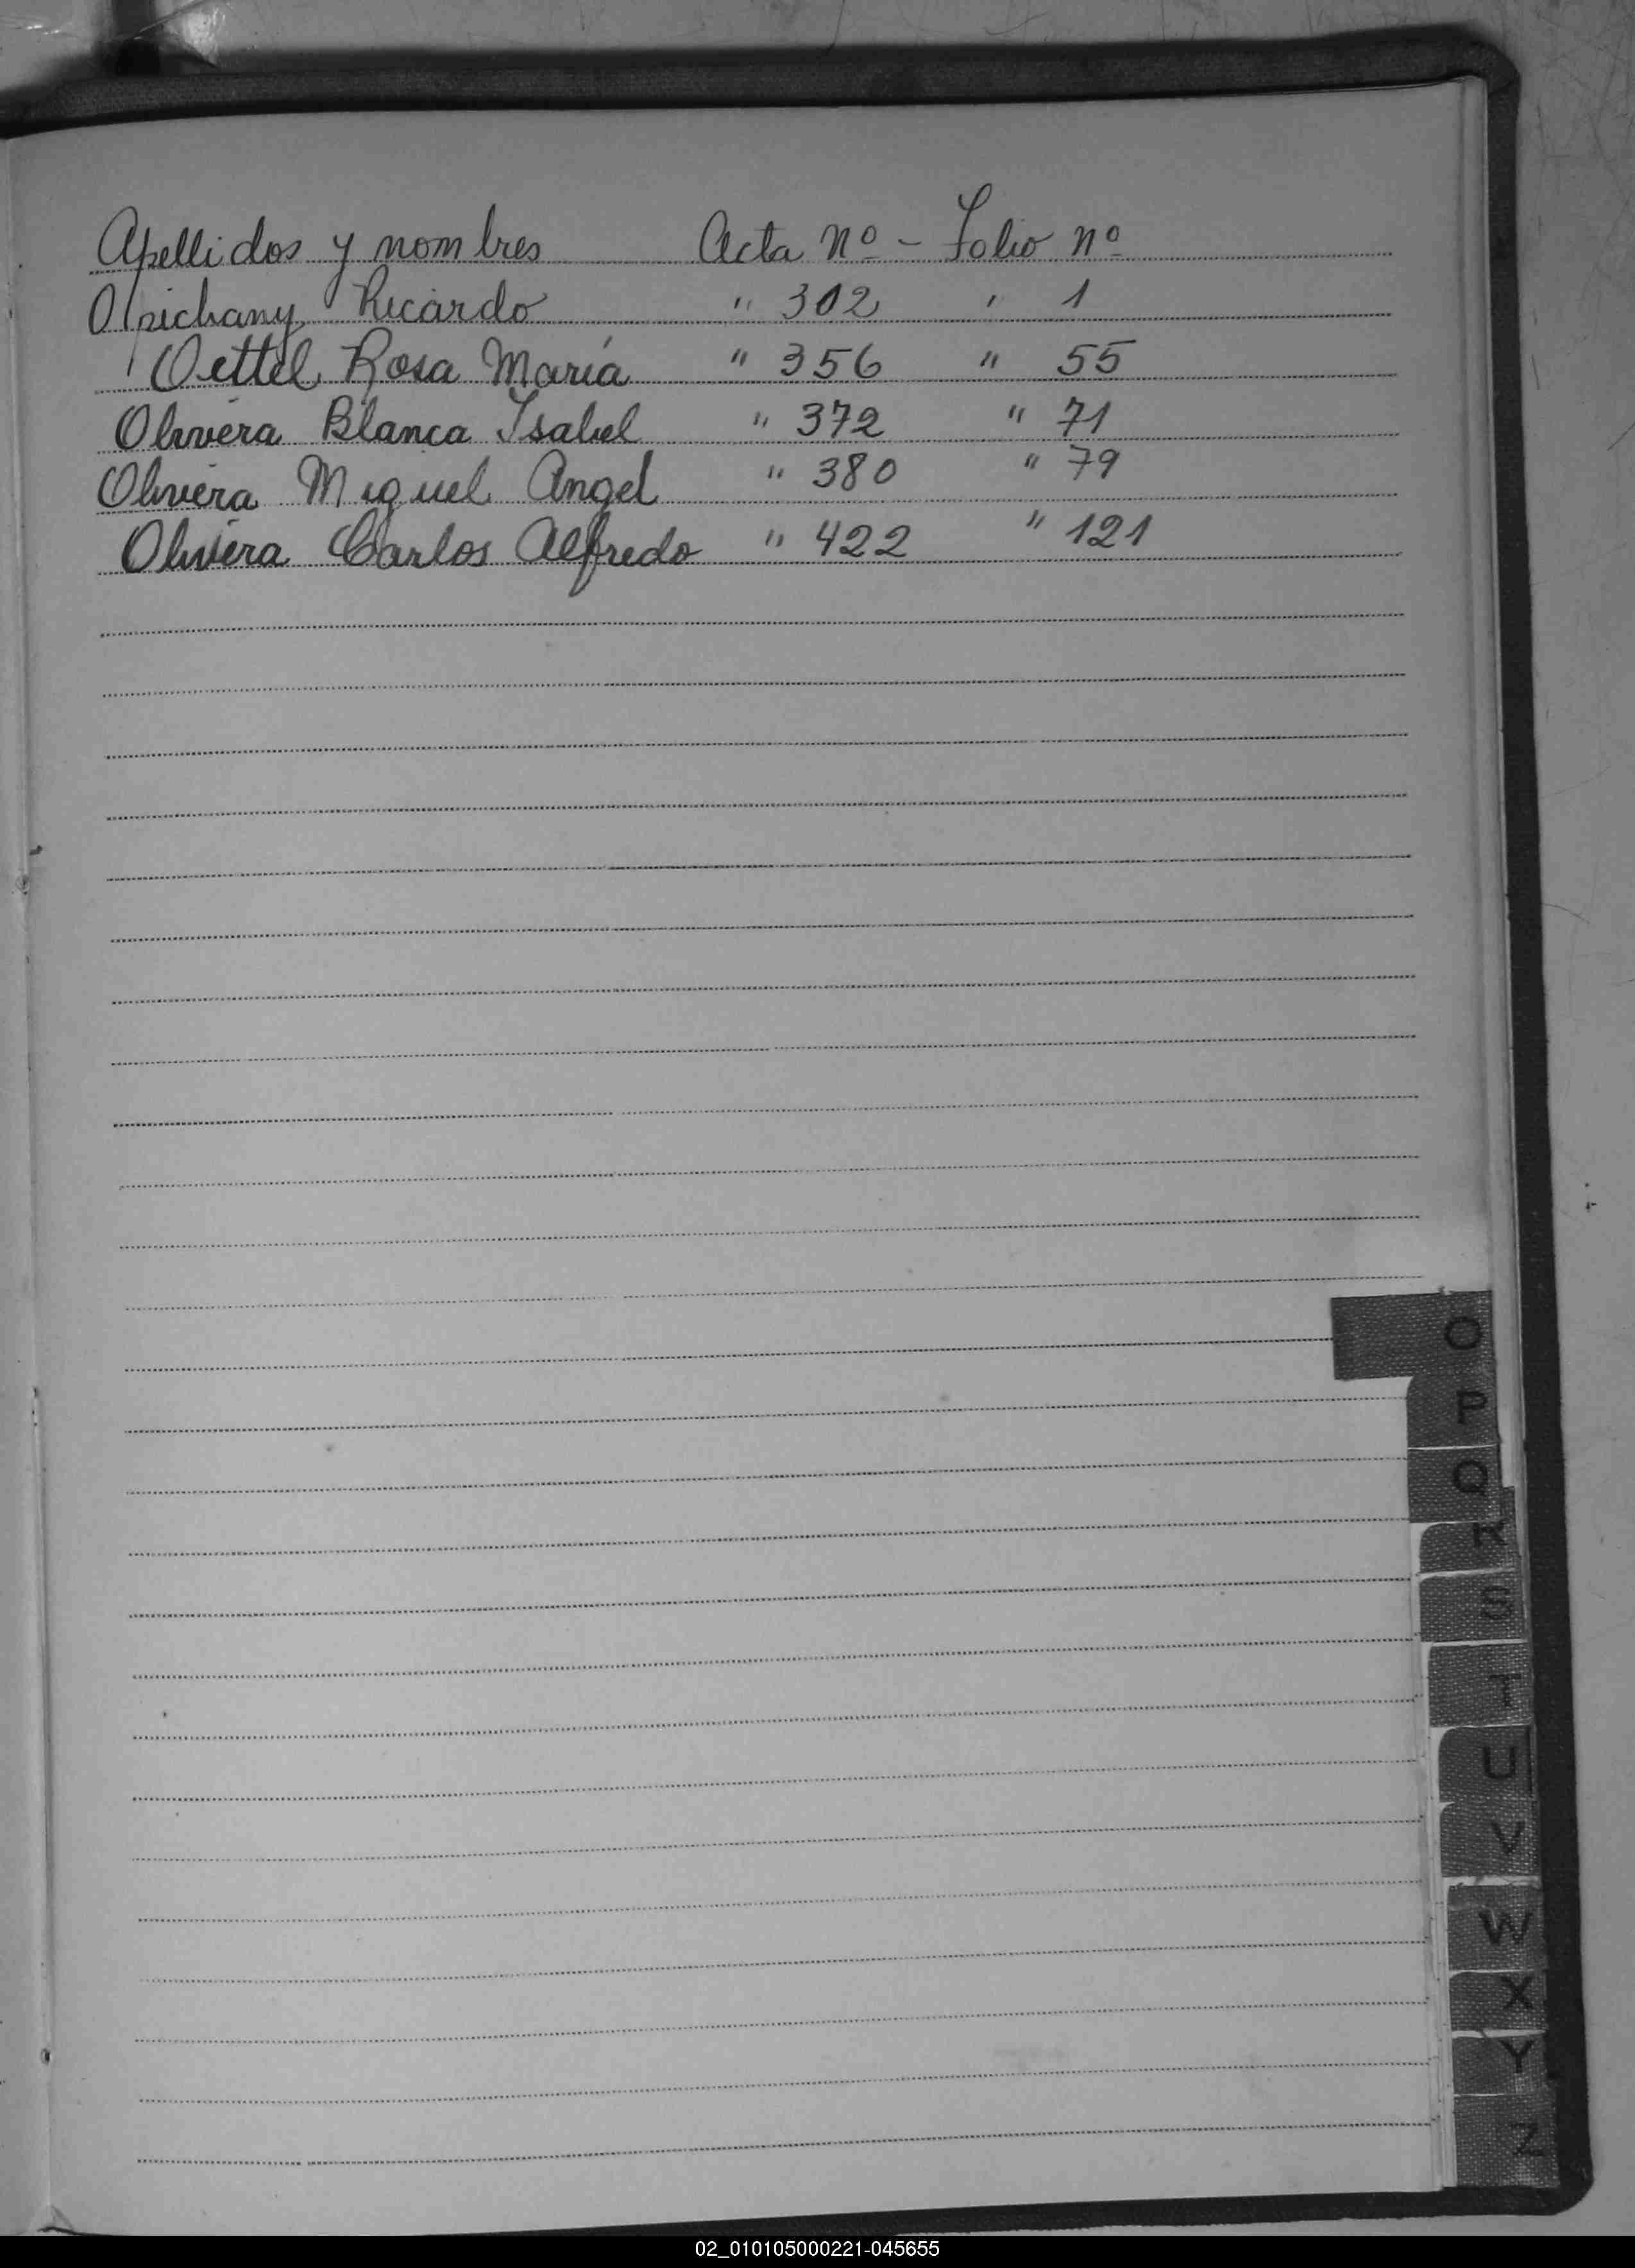 Apellidos y nombres Acta nº - Folio nº
Opichany Ricardo " 302 " 1
Oettel Rosa María " 356 " 55
Olivera Blanca Isabel " 372 " 71
Olivera Miguel Angel " 380 " 79
Olivera Carlos Alfredo " 422 " 121
O
P
Q
R
S
T
U
V
W
X
Y
Z
02_010105000221-045655